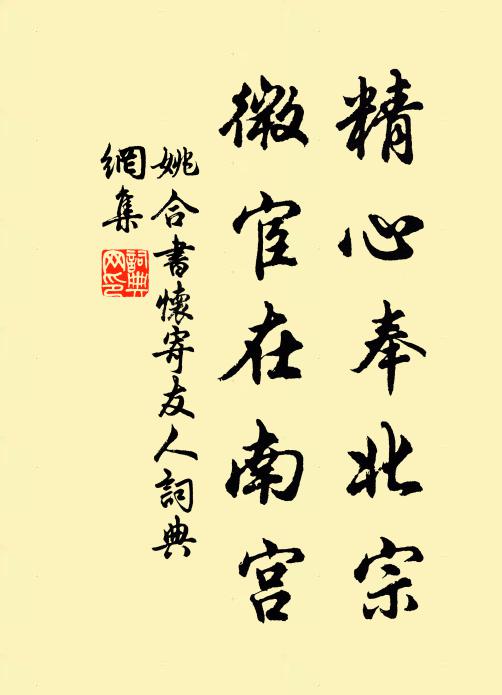 精心奉北宗
微宦在南宫
姚合書懷寄友人詞典
網集
詞典
网印